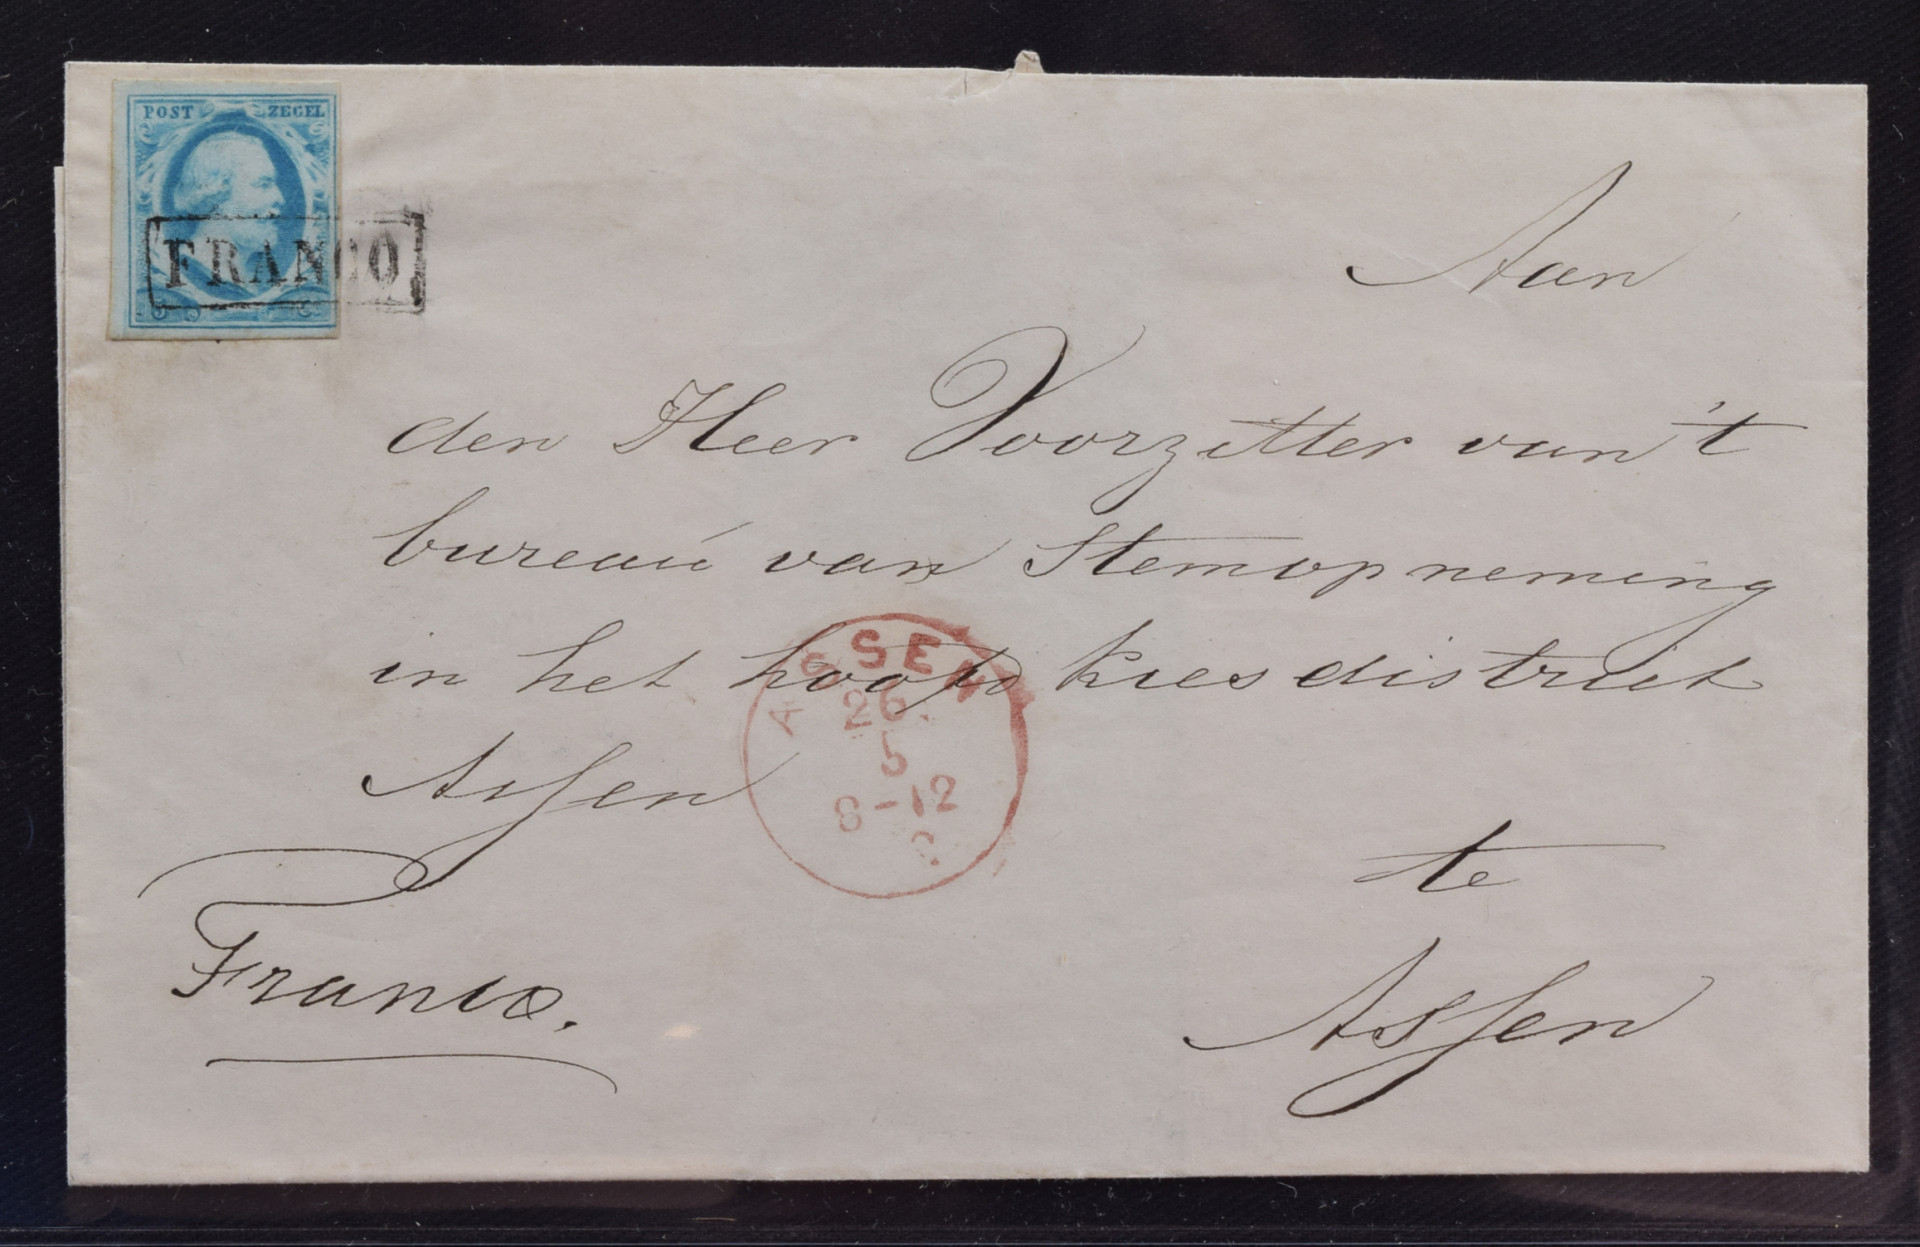 POST ZEGEL
FRANCO
Aan
den Heer Voorzitter van 't
bureau van Stemopneming
in het hoofd kiesdistrict
Assen
ASSEN
26
5
8-12
te
Assen
Franco.